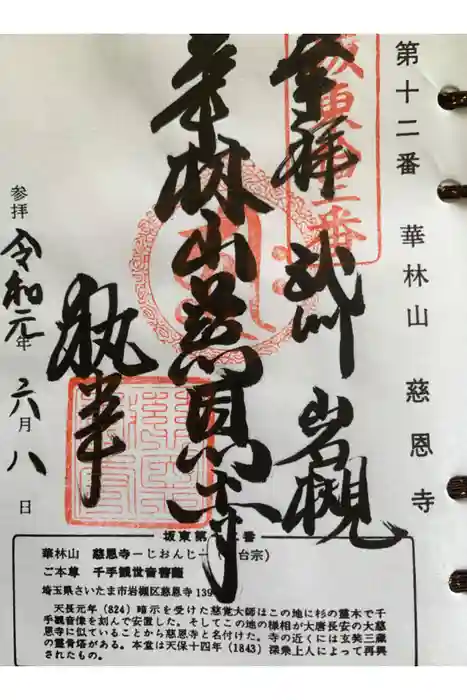 第十二番 華林山 慈恩寺
奉拝 武州 岩槻
華林山慈恩寺
執筆
参拝 令和元年 六月 八日
坂東第十二番
華林山 慈恩寺―じおんじ―(天台宗)
ご本尊 千手観世音菩薩
埼玉県さいたま市岩槻区慈恩寺139
天長元年(824)暗示を受けた慈覚大師はこの地に杉の霊木で千
手観音像を刻んで安置した。そしてこの地の様相が大唐長安の大慈
恩寺に似ていることから慈恩寺と名付けた。寺の近くには玄奘三蔵
の霊骨塔がある。本堂は天保十四年(1843)深乗上人によって再興
されたもの。